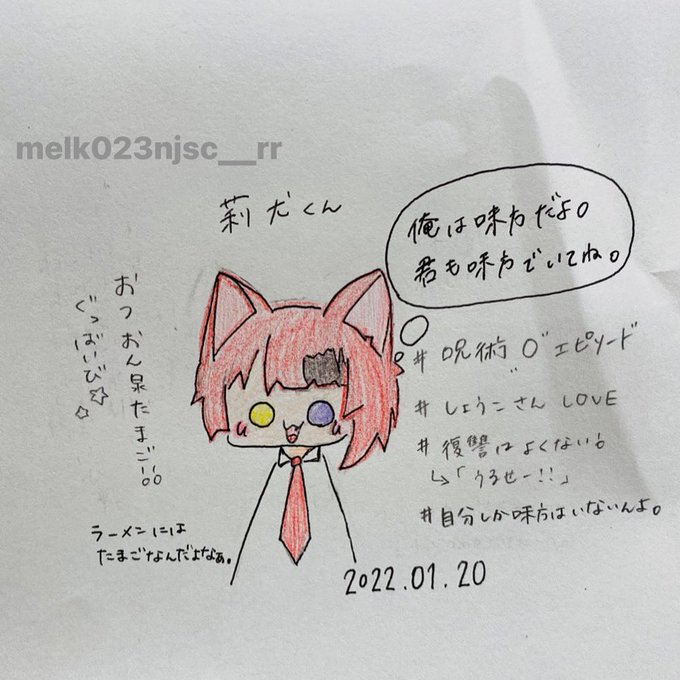 melk023njsc__rr
莉犬くん
俺は味方だよ。
君も味方でいてね。
おつおん泉たまご!!
ぐっばいび☆☆
#呪術0"エピソード"
#しょうこさん LOVE
#復讐はよくない!
↳「うるせー!!」
#自分しか味方はいないんよ。
ラーメンには
たまごなんだよなぁ。
2022.01.20